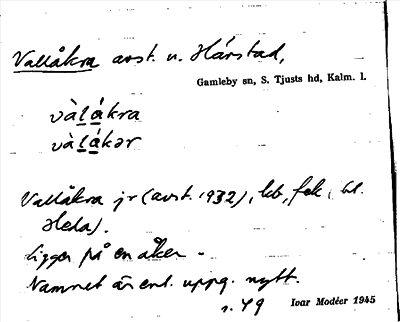 Vallåkra avst. u. Hårstad,
Gamleby sn, S. Tjusts hd, Kalm. l.
vàlákra
vàlákər
Vallåkra jr (avst. 1932), kb, fek, bl.
Heda).
Ligger på en åker.
Namnet är enl. uppg. nytt.
s. 49 Ivar Modéer 1945